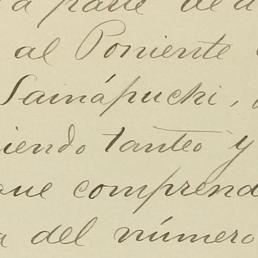 a parte de
al Poniente
Sainápuchi,
iendo tanteo y
que comprend
a del número